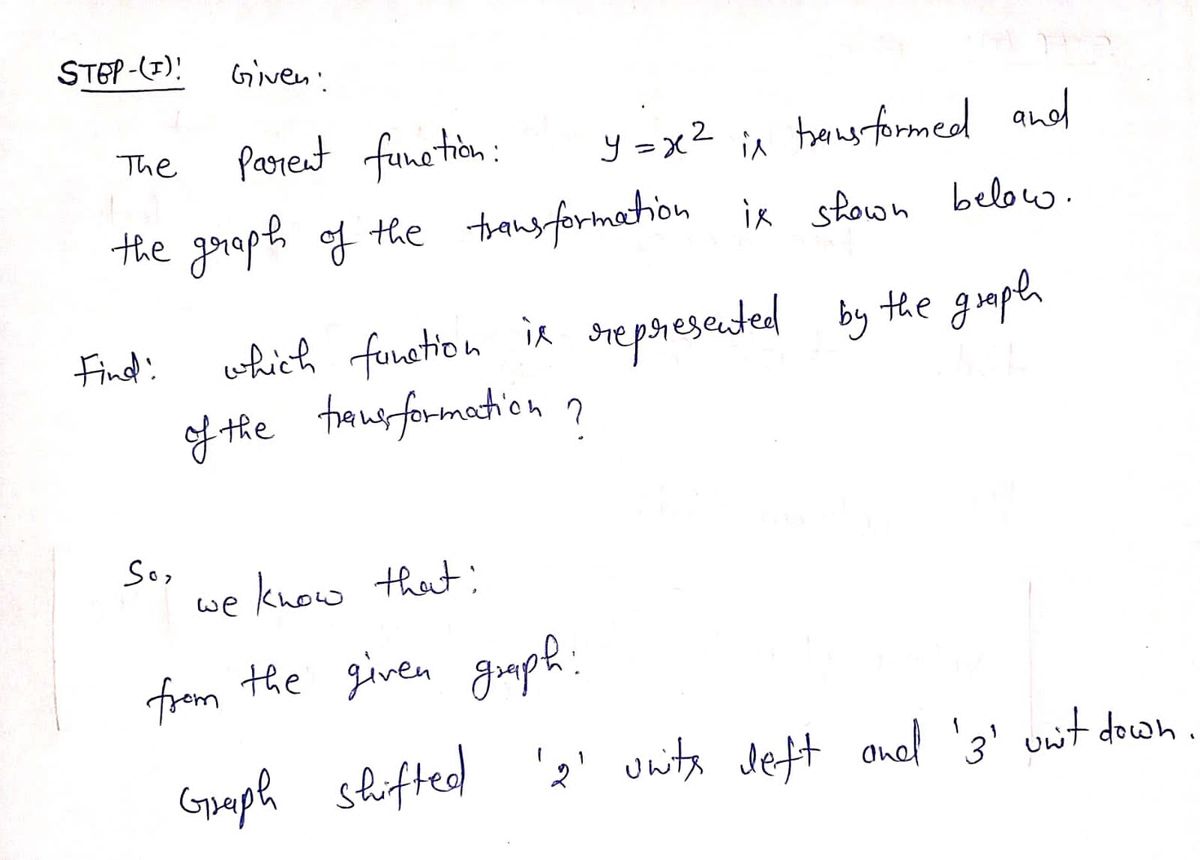 STEP-(I): Given:
The Parent function: y = x² is transformed and
the graph of the transformation is shown below.
Find: which function is represented by the graph
of the transformation ?
So, we know that:
from the given graph:
Graph shifted '2' units left and '3' unit down.